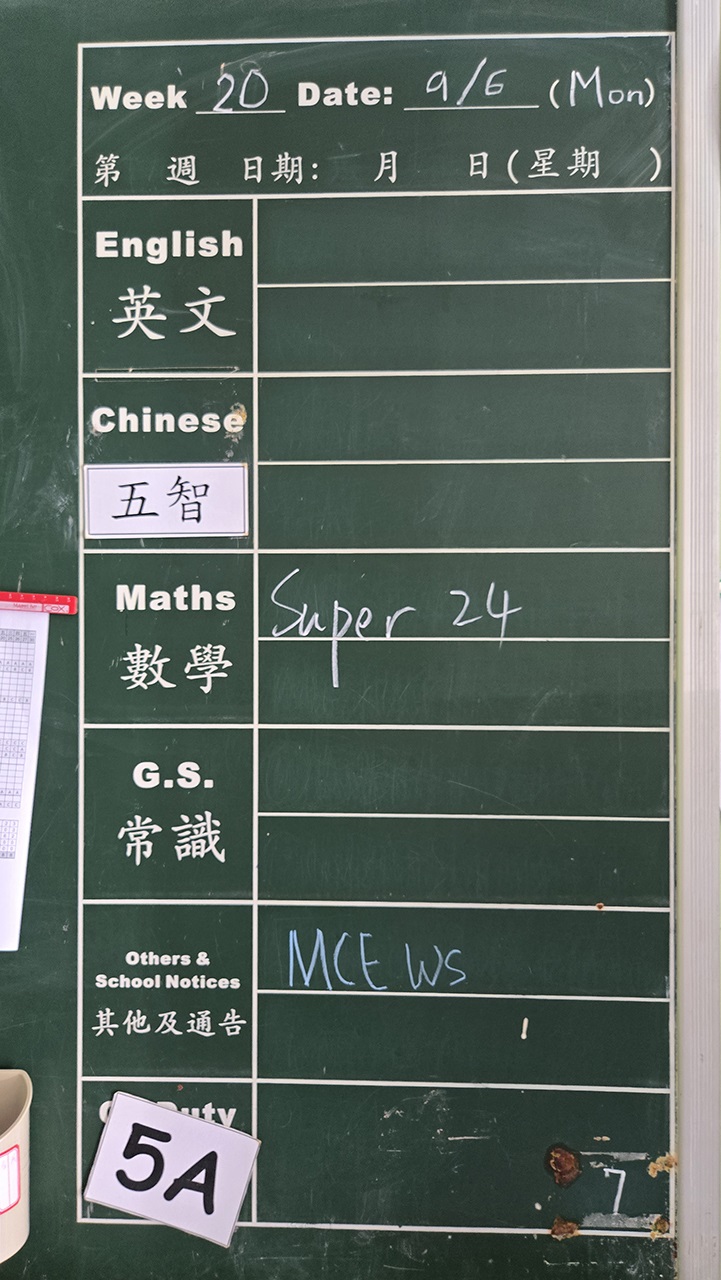 Week 20 Date: 9/6 (Mon)
第 週 日期: 月 日(星期 )
English
英文
Chinese
五智
Maths
Super 24
數學
G.S.
常識
Others &
School Notices
MCE WS
其他及通告
Duty
5A
7